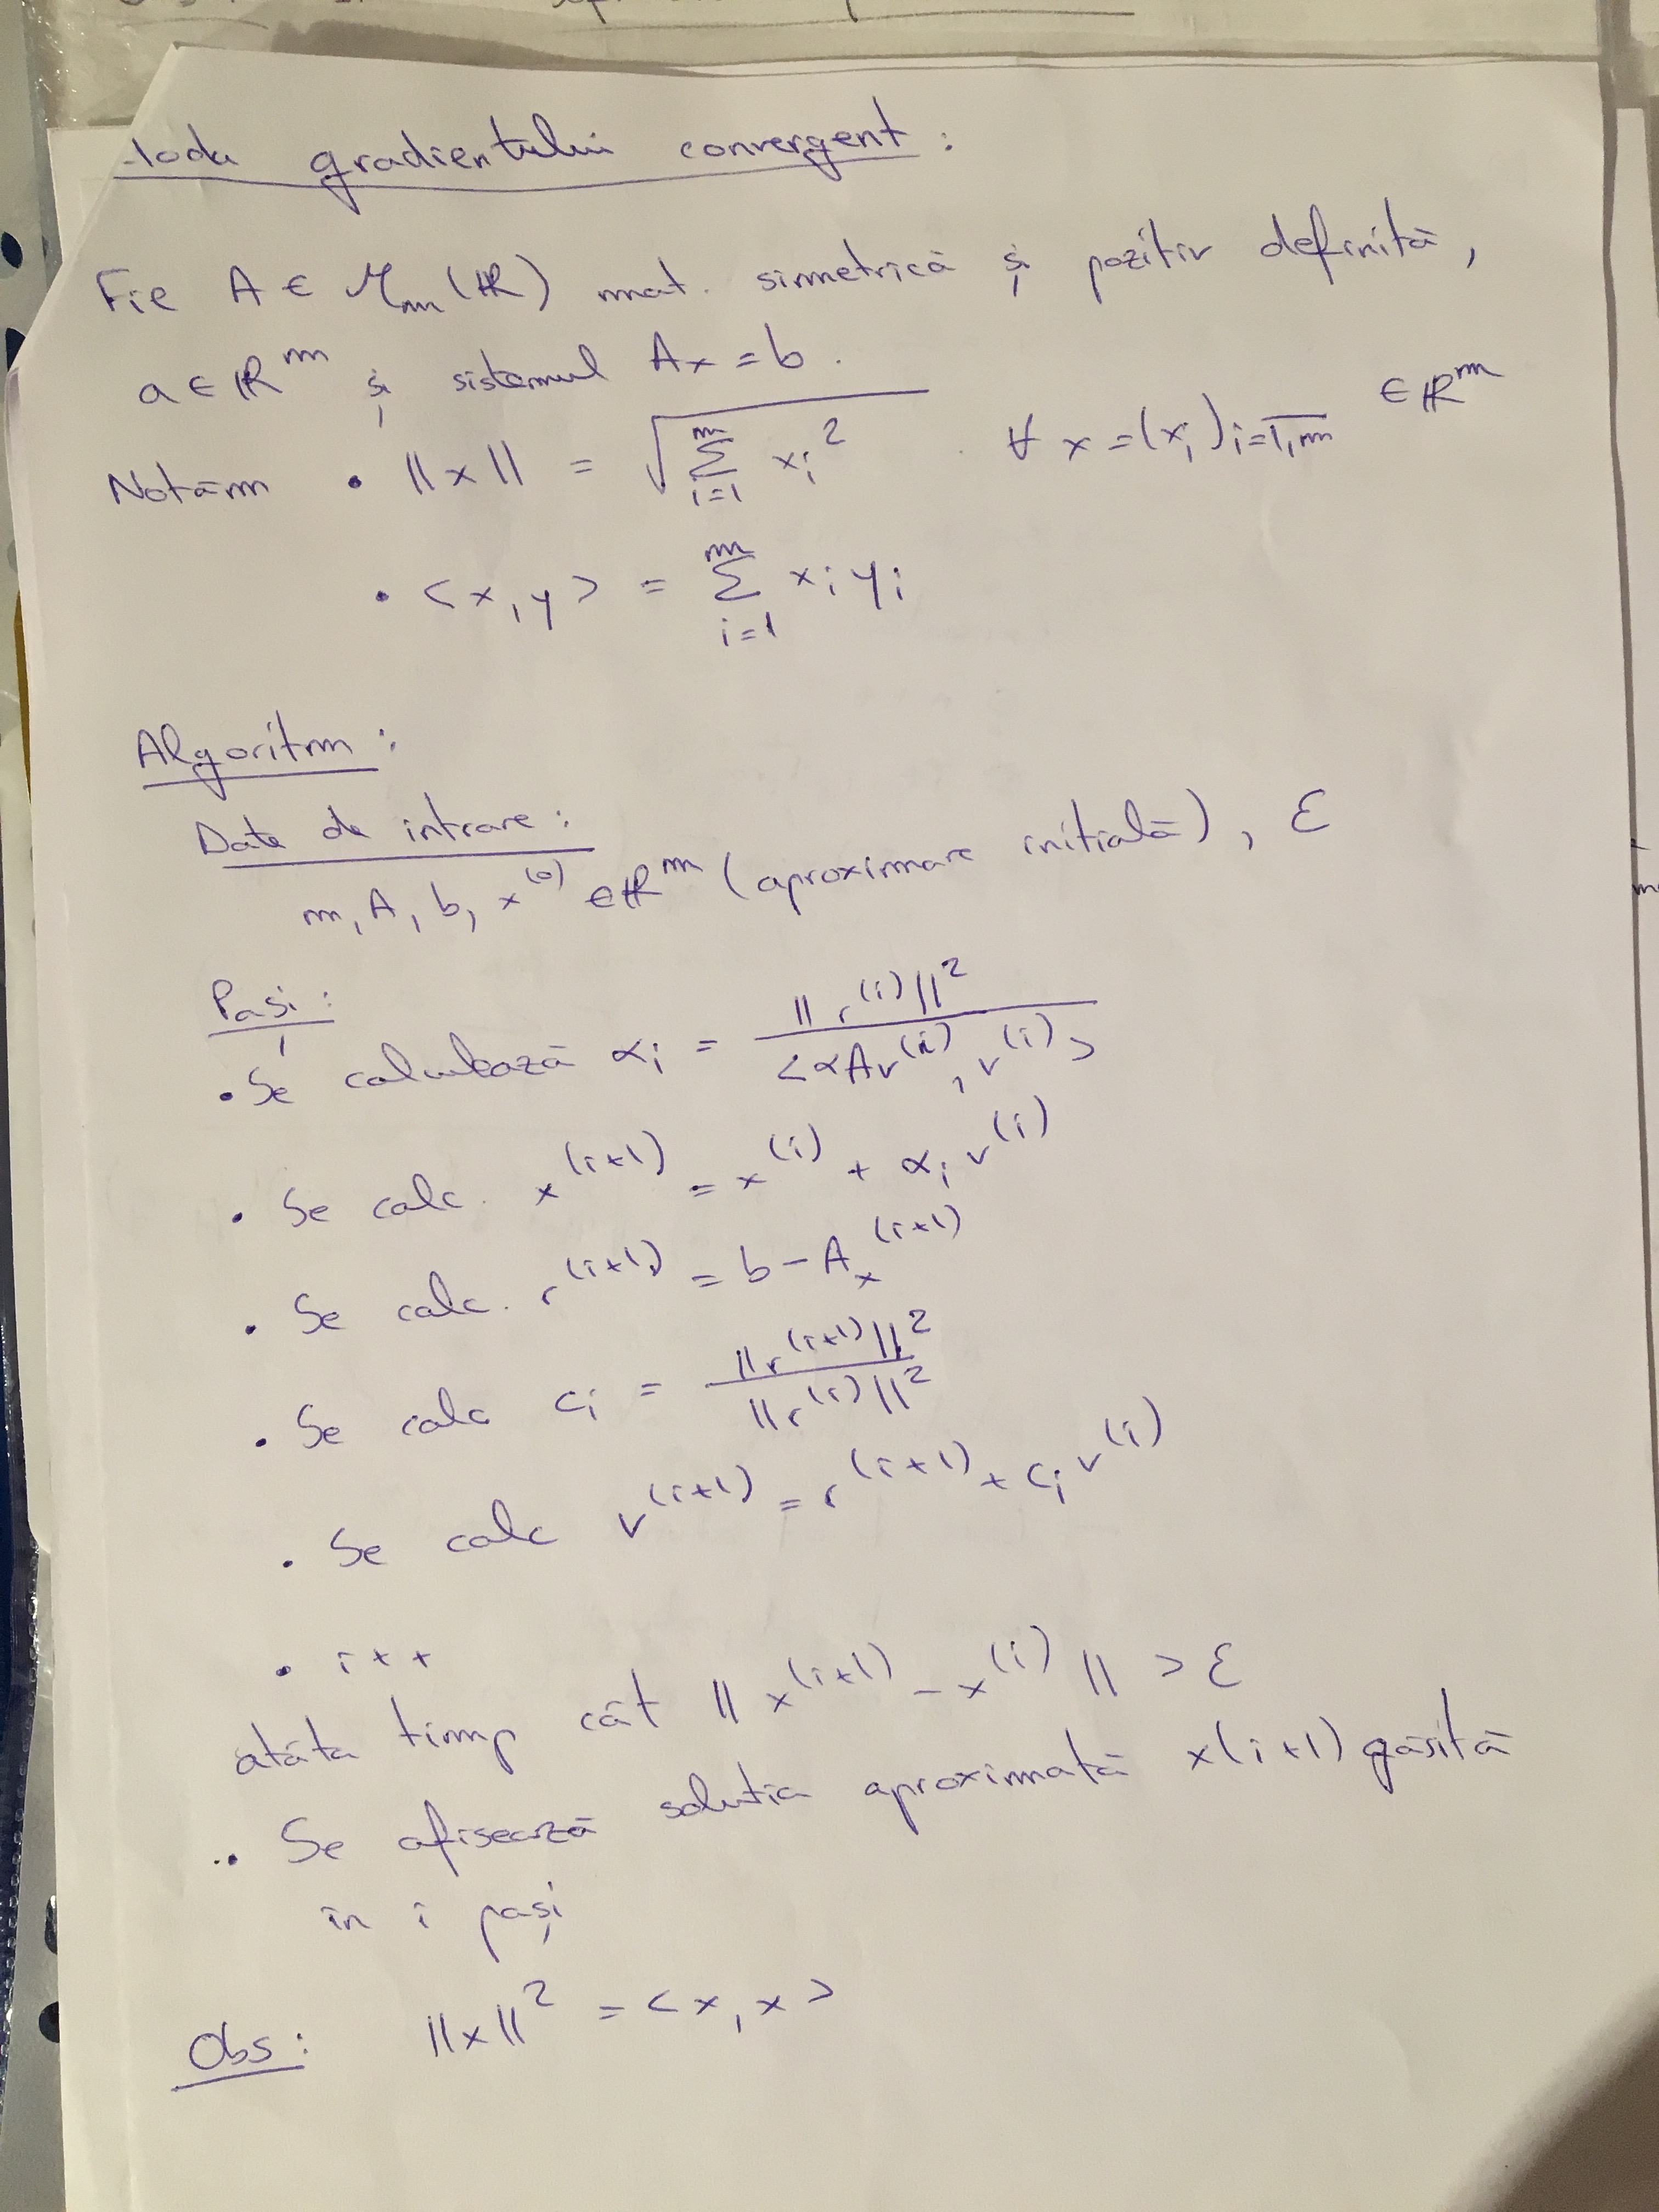 gradientului convergent :
Fie A ∈ M_m(ℝ) mat. simetrică și pozitiv definită,
a ∈ ℝ^m și sistemul Ax = b.
Notăm • ||x|| = √(∑_{i=1}^{m} x_i^2) ∀ x = (x_i)_{i=1,m} ∈ ℝ^m
• <x,y> = ∑_{i=1}^{m} x_i y_i
Algoritm :
Date de intrare :
m, A, b, x^(0) ∈ ℝ^m (aproximare initială), ε
Pași :
• Se calculează α_i = ||r^(i)||^2 / <αAv^(i), v^(i)>
• Se calc. x^(i+1) = x^(i) + α_i v^(i)
• Se calc. r^(i+1) = b - Ax^(i+1)
• Se calc c_i = ||r^(i+1)||^2 / ||r^(i)||^2
• Se calc v^(i+1) = r^(i+1) + c_i v^(i)
• i++
atâta timp cât || x^(i+1) - x^(i) || > ε
• Se afisează solutia aproximată x(i+1) găsită
în i pași
Obs : ||x||^2 = <x, x>